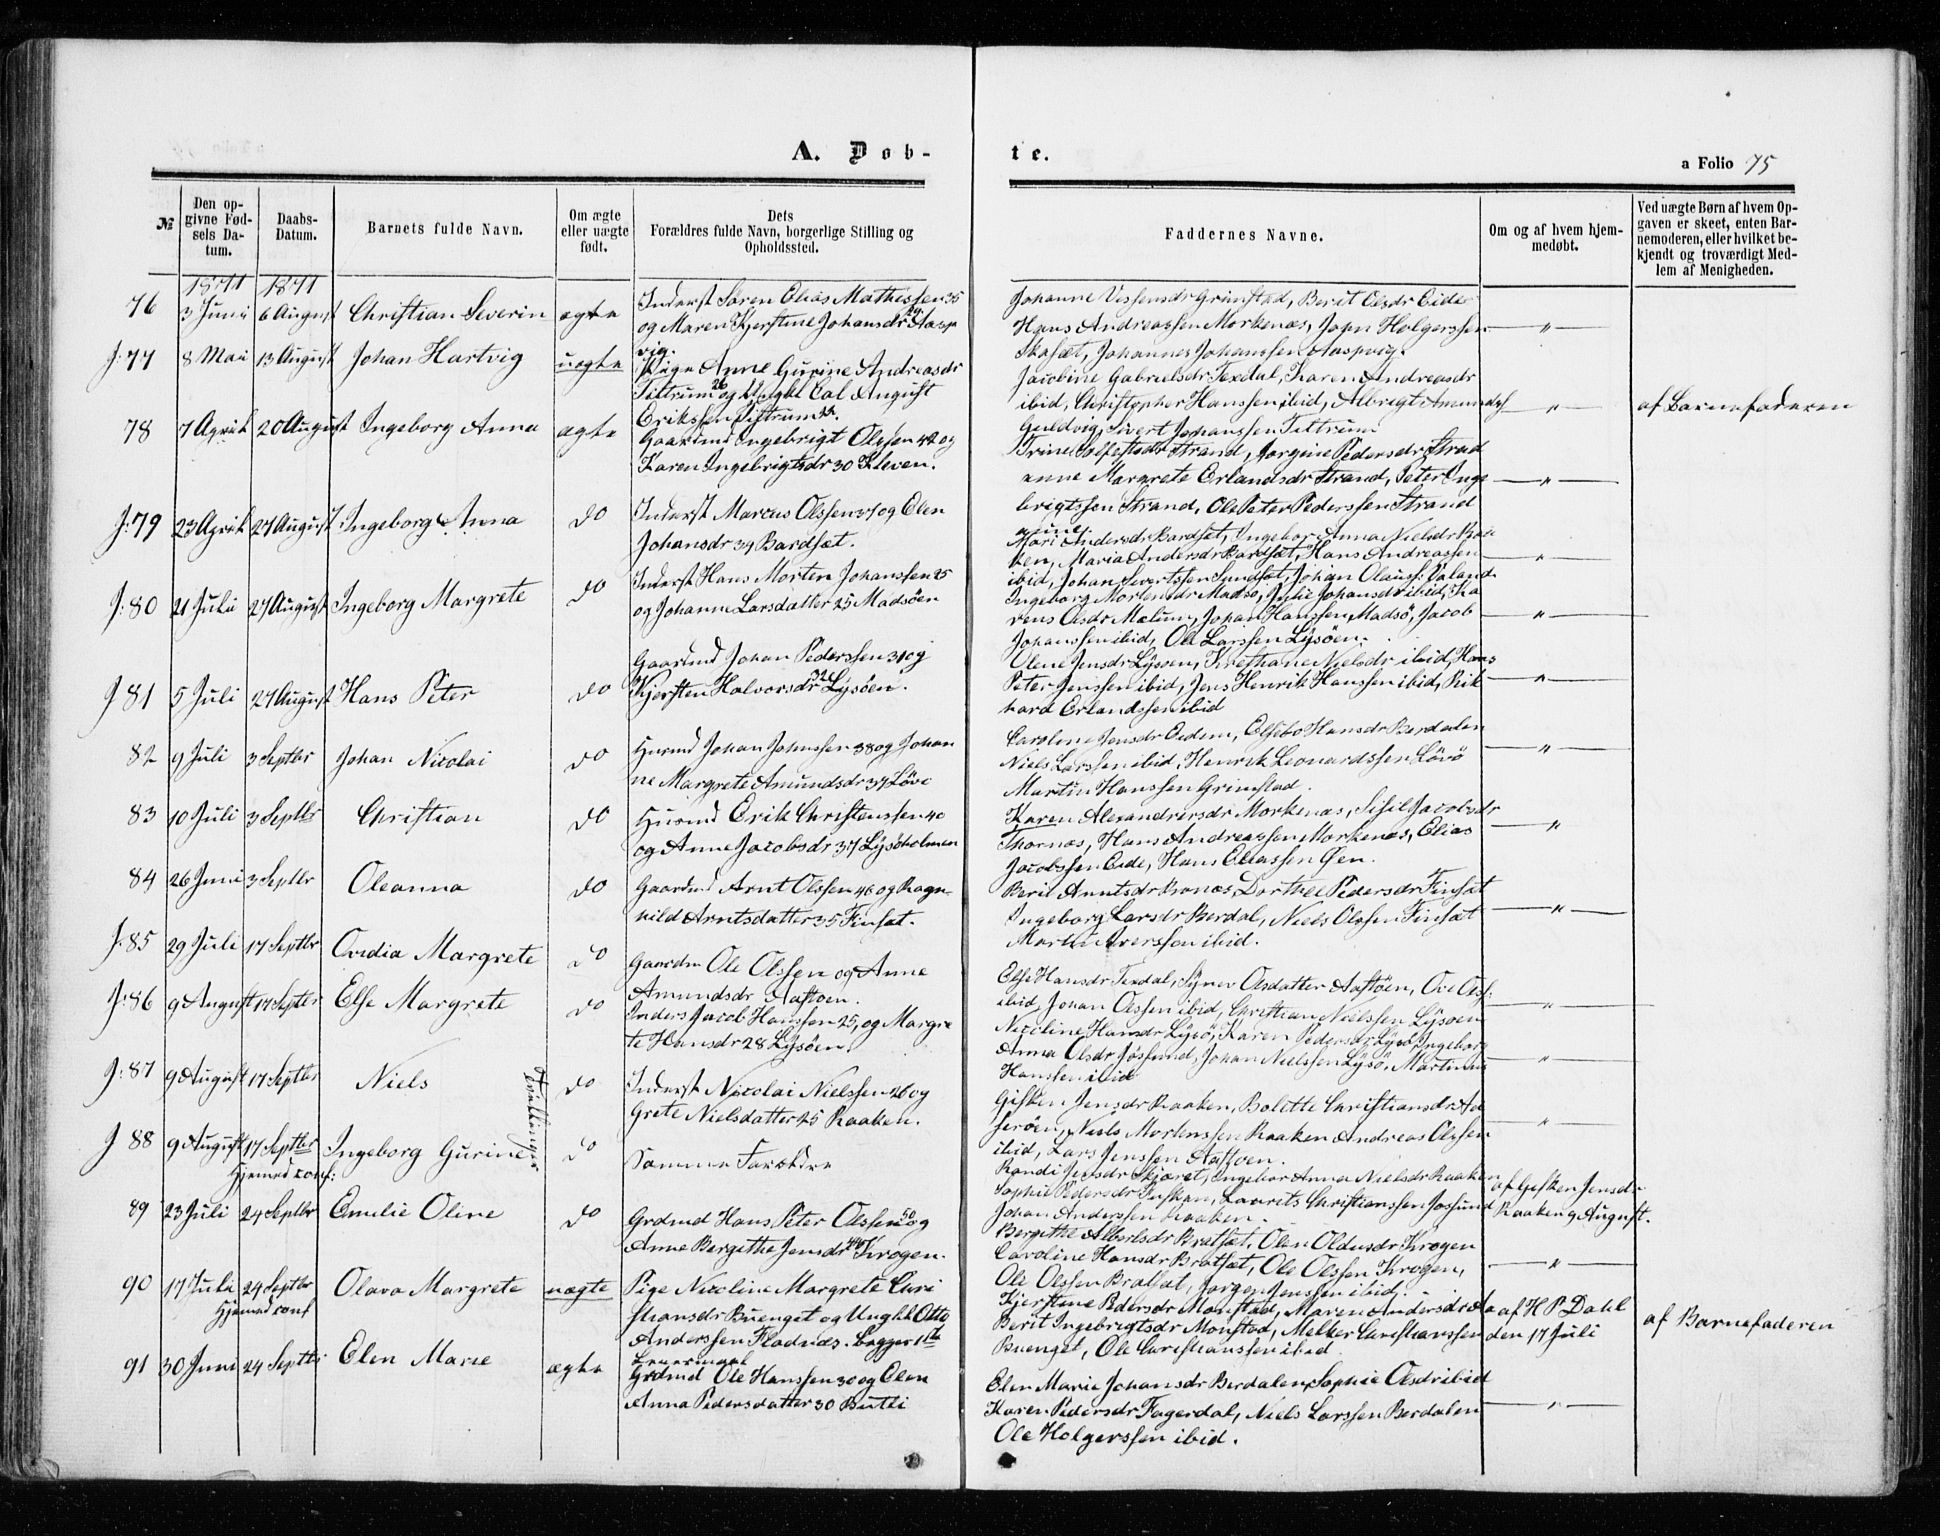 A. Døb-
te.
a Folio 75
№
Den opgivne Fødsels Datum.
Daabs-Datum.
Barnets fulde Navn.
Om ægte eller uægte født.
Dets Forældres fulde Navn, borgerlige Stilling og Opholdssted.
Faddernes Navne.
Om og af hvem hjemmedøbt.
Ved uægte Børn af hvem Opgaven er skeet, enten Barnemoderen, eller hvilket bekjendt og troværdigt Medlem af Menigheden.
1871 1871
76 3 Juni 6 August Christian Severin ægte
Inderst Søren Elias Mathissen 35
og Maren Kjerstine Johansdr 29 Aasp
vig.
Johanne Jessensdr Grimstad, Berit Olsdr Eide
Hans Andreassen Morkenæs, John Holgerssen
Skasæt, Johannes Johanssen Aaspvig.
"
J: 77 8 Mai 13 August Johan Hartvig uægte
Pige Anne Gurine Andreasdr
Tittrum 26 og Ungkl Carl August
Erikssen Tittrum
Jacobine Gabrielsdr Texdal, Karen Andreasdr
ibid, Christopher Hanssen ibid, Albrigt Amundss
Guldvig, Sivert Johanssen Tittrum
"
af Barnefaderen
78 7 April 20 August Ingeborg Anna ægte
Gaardmd Ingebrigt Olssen 42 og
Karen Ingebrigtsdr 30 Kleven.
Trine Strand, Jørgine Pedersdr Strand
anne Margrete Erlandsdr Strand, Peter Inge
brigtssen Strand, Ole Peter Pederssen Strand
"
J: 79 23 April 27 August Ingeborg Anna do
Inderst Marcus Olssen 37 og Elen
Johansdr 39 Bardsæt.
Mari Andersdr Bardsæt, Ingebor Anna Nielsdr Raa
ken, Maria Andersdr Bardsæt, Hans Andreassen
ibid, Johan Sivertssen Sundsæt, Johan Olauss:
"
J: 80 21 Juli 27 August Ingeborg Margrete do
Inderst Hans Morten Johanssen 25
og Johanne Larsdatter 25 Madsøen
Ingeborg Mortensdr Madsø, Julie Johansdr ibid, Ka
rens Olsdr Mælum, Johan Hanssen Madsø, Jacob
Johanssen ibid, Ole Larssen Lysøen.
"
J 81 5 Juli 27 August Hans Peter do
Gaardmd Johan Pederssen 31 og
Kjersten Halvorsdr 32 Lysøen.
Olene Jensdr Lysøen, Nielsdr ibid, Hans
Peter Jenssen ibid, Jens Henrik Hanssen ibid, Rik
hard Erlandssen ibid
"
82 9 Juli 3 Septbr Johan Nicolai do
Husmd Johan Johnssen 38 og Johan
ne Margrete Amundsdr 37 Løvø
Caroline Jensdr Eidem, Elsebo Hansdr Berdalen
Niels Larssen ibid, Henrik Leonardssen Løvø
Martin Hanssen Grimstad.
"
83 10 Juli 3 Septbr Christian do
Husmd Erik Christenssen 40
og Anne Jacobsdr 37 Lysøholmen
Karen Alexandersdr Morkenæs, Sisil Jacobsdr
Thornæs, Hans Andreassen Morkenæs, Elias
Jacobssen Eide, Hans Eliassen Øen.
"
84 26 Juni 3 Septbr Oleanna do
Gaardmd Arnt Olssen 46 og Ragn-
hild Arntsdatter 35 Finsæt.
Berit Arntsdr Bonæs, Dorthee Pedersdr Finsæt
Ingeborg Larsdr Berdal, Niels Olssen Finsæt
Martin Iverssen ibid.
"
J: 85 29 Juli 17 Septbr Ovidia Margrete do
Gaardm Ole Olssen og Anne
Amundsdr Aaftøen.
Else Hansdr Texdal, Synev Olsdatter Aaftøen, Ove Olss:
ibid, Johan Olssen ibid, Christian Nielssen Lysøen
"
J: 86 9 August 17 Septbr Else Margrete do
Inders Jacob Hanssen 25, og Margre
te Hansdr 28 Lysøen.
Nicoline Hansdr Lysø, Karen Pedersdr Lysø, Ingeborg
Anna Olsdr Jøssund, Johan Nielssen Lysø, Martinus
Hanssen ibid
"
J: 87 9 August 17 Septbr Niels do
Tvillinger
Inderst Nicolai Nielssen 26 og
Grete Nielsdatter 25 Raaken.
Gisken Jensdr Raaken, Bolette Christiansdr Aa
serøen, Niels Mortenssen Raaken Andreas Olssen
ibid, Lars Jenssen Aaftøen.
"
J 88 9 August 17 Septbr Ingeborg Gurine do
Hjemmed conf:
Samme Forældre
Randi Jensdr Skjæret, Ingebor Anna Nielsdr Raaken
Sophie Pedersdr, Laurits Christianssen Jøssund
Johan Anderssen Raaken.
af Gisken Jensdr
Raaken 9 August.
89 23 Juli 24 Septbr Emelie Oline do
Grdmd Hans Peter Olssen 50 og
Anne Bergithe Jensdr 44 Krogen.
Bergithe Albertsdr Bratsæt, Olen Oldusdr Krogen
Caroline Hansdr Bratsæt, Ole Olssen Krogen,
Ole Olssen Bratsæt, Jørgen Jenssen ibid.
"
90 17 Juli 24 Septbr Olava Margrete uægte
Hjemmed conf
Pige Nicoline Margrete Chri
stiansdr Buenget og Ungkl Otto
Anderssen Fladnæs. Begges 1ste
Leiermaal
Kjerstine Pedersdr Monstad, Maren Andersdr Aa
Berit Ingebrigtsdr Monstad, Melker Christianssen
Buenget, Ole Christianssen ibid
af H P Dahl
den 17 Juli
af Barnefaderen
91 30 Juni 24 Septbr Elen Marie ægte
Grdmd Ole Hanssen 30 og Elen
Anna Pedersdatter 30 Butli
Elen Marie Johansdr Berdalen, Sophie Olsdr ibid
Karen Pedersdr Fagerdal, Niels Larssen Berdalen
Ole Holgerssen ibid.
"